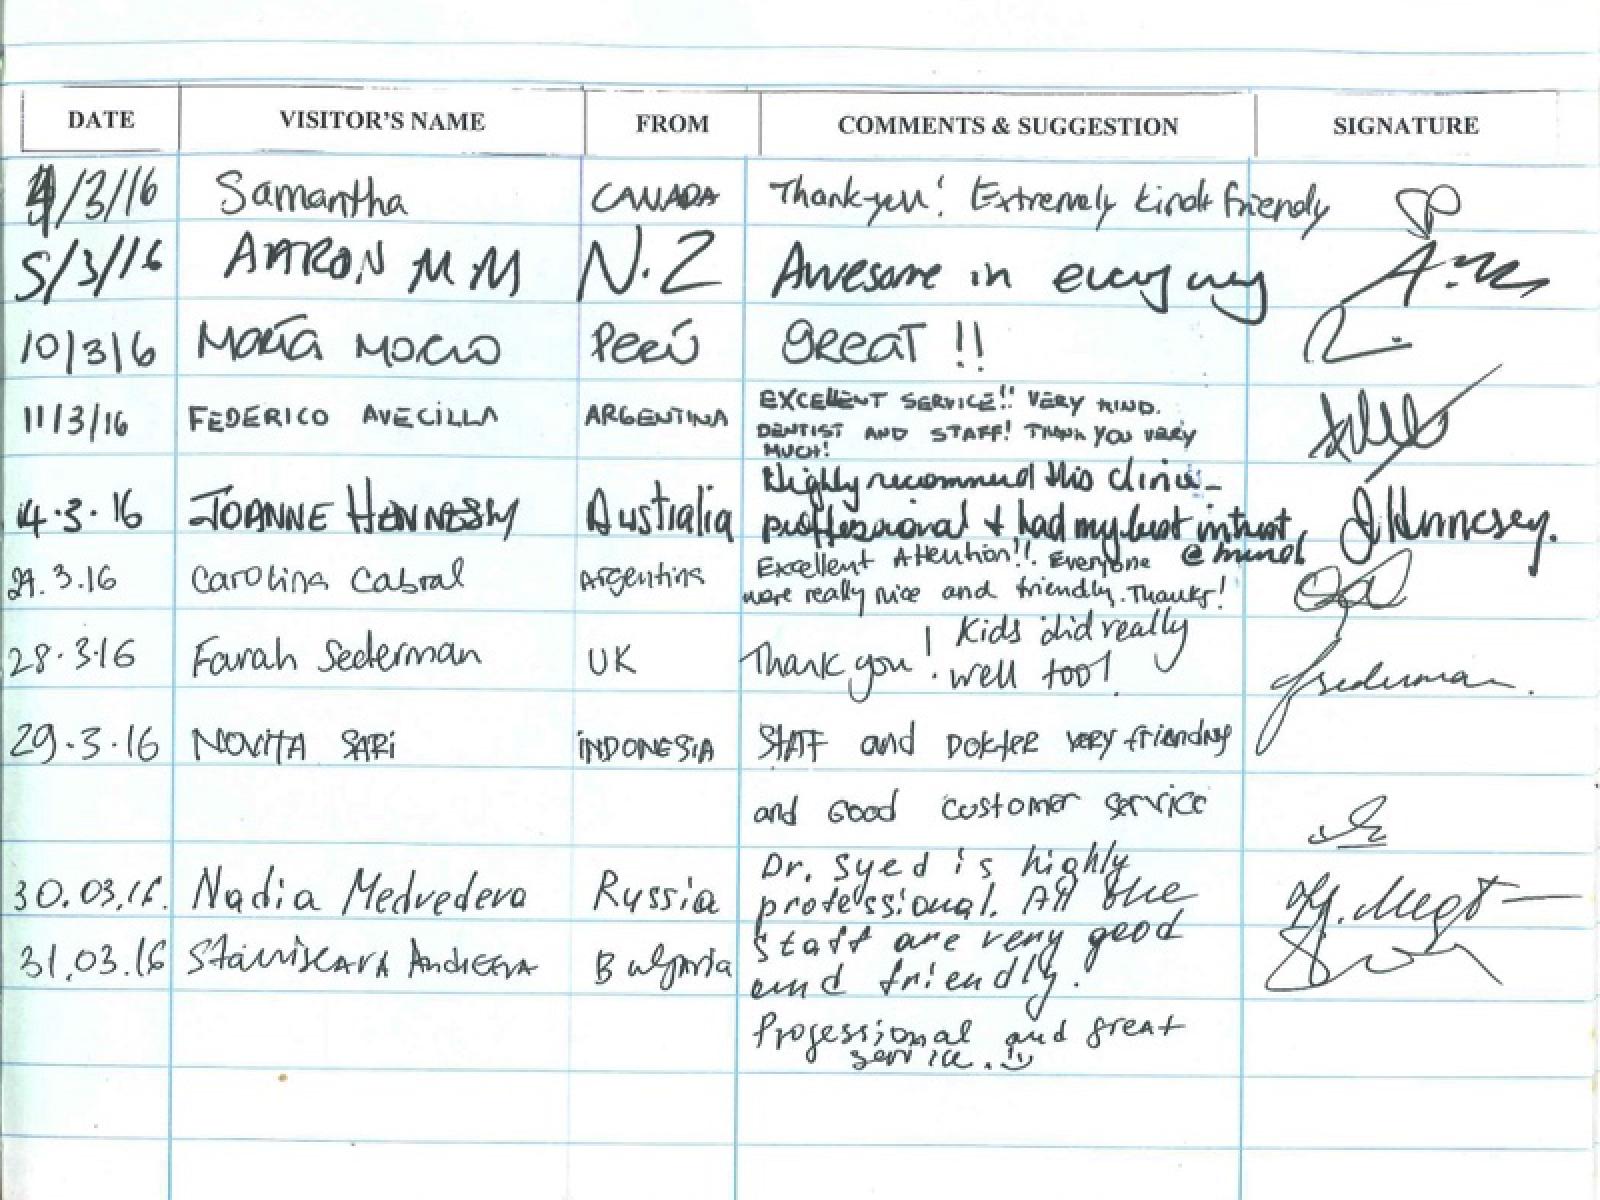 DATE VISITOR'S NAME FROM COMMENTS & SUGGESTION SIGNATURE
4/3/16 Samantha CANADA Thank-you! Extremely kind & friendly SP
5/3/16 AARON M M N.Z Awesome in every way
10/3/16 María Morcio Perú GREAT !!
11/3/16 FEDERICO AVECILLA ARGENTINA EXCELLENT SERVICE!! VERY KIND.
DENTIST AND STAFF! THANK YOU VERY
MUCH!
14.3.16 JOANNE HENNESSY Australia Highly recommend this clinic -
professional & had my best intrest J Hennessy.
@ mind
29.3.16 Carolina Cabral Argentina Excellent Attention!! Everyone
were really nice and friendly. Thanks!
28.3.16 Farah Sederman UK Thank you! Kids did really
well too! fsederman.
29.3.16 NOVITA SARI INDONESIA STAFF and DOKTER VERY friendly
and Good customer service
30.03.16. Nadia Medvedeva Russia Dr. Syed is highly
professional. All the
staff are very good
and friendly.
31.03.16 Andreeva Bulgaria Progessional and great
service. :)